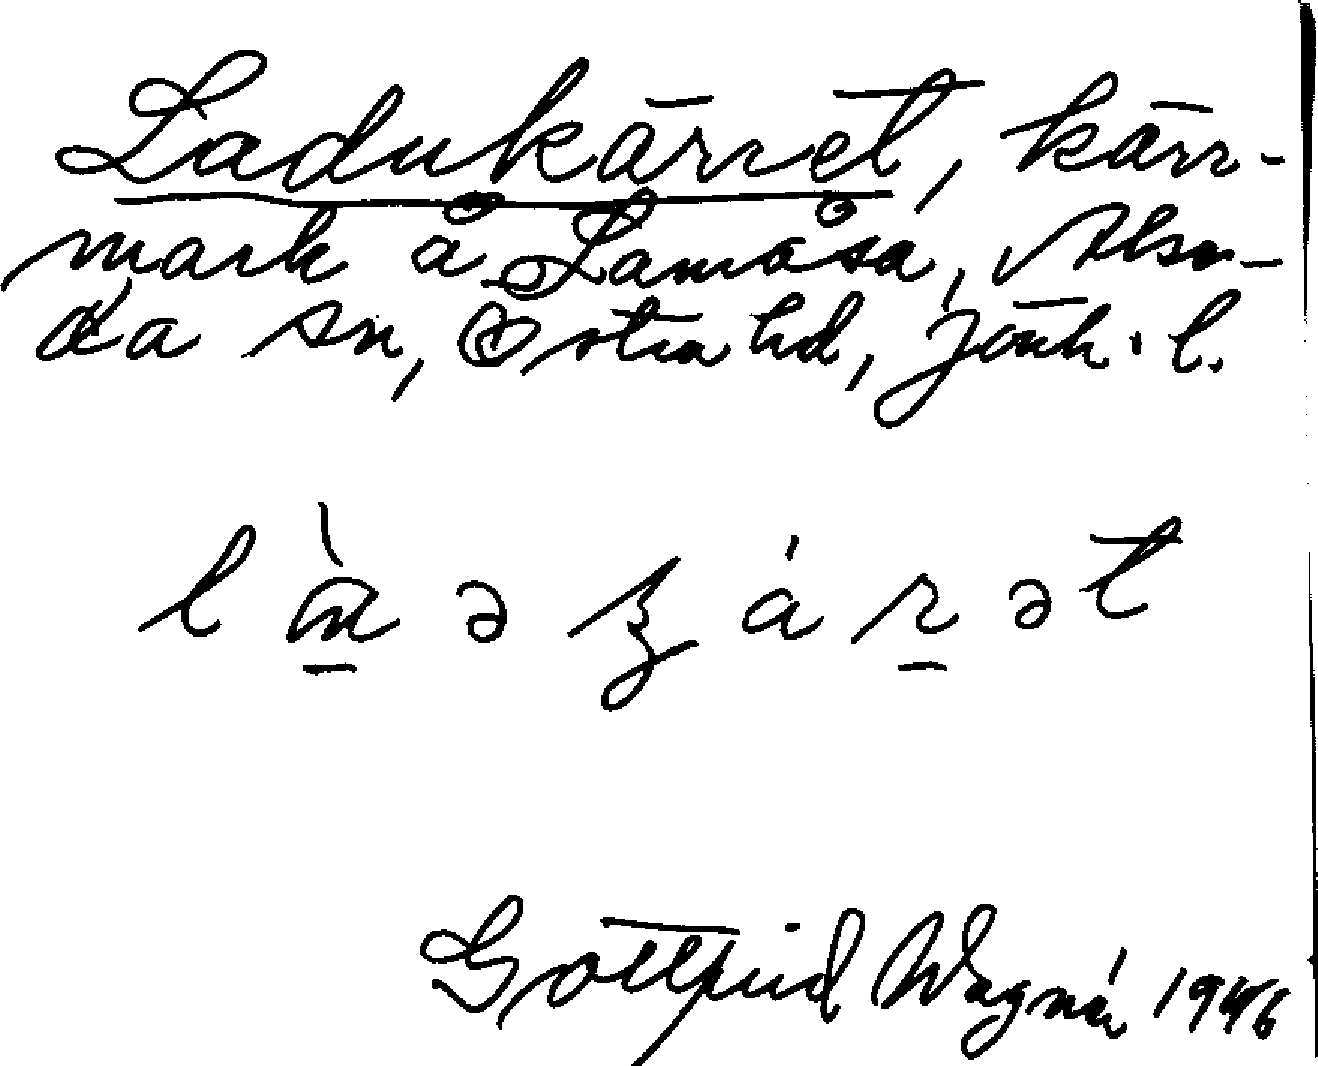 Ladukärret, kärr-
mark å Lamåsa, Alse-
da sn, Östra hd, Jönk. l.
Gottfrid Wagnér 1946